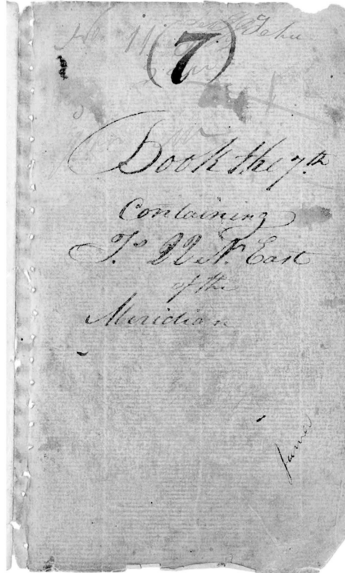 (7)
Book the 7th
Containing
Ts 22 N. East
of the
Meridian
James